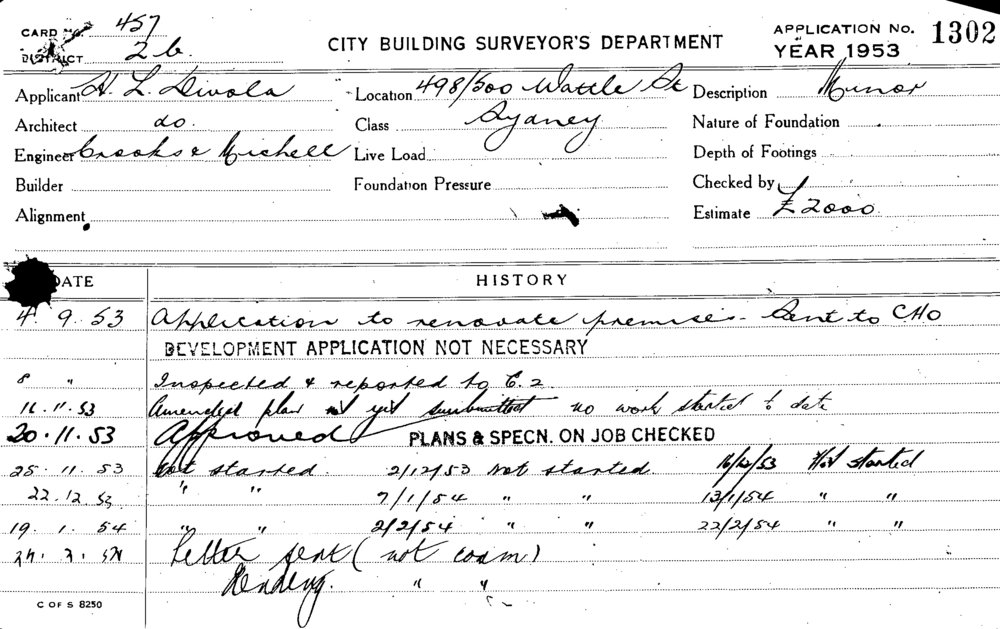 CARD No. 457
DISTRICT 2b
CITY BUILDING SURVEYOR'S DEPARTMENT
APPLICATION No. 1302
YEAR 1953
Applicant H. L. Divola Location 498/500 Wattle St Description Minor
Architect do. Class Sydney Nature of Foundation
Engineer Crooks & Michell Live Load Depth of Footings
Builder Foundation Pressure Checked by
Alignment Estimate £2000
DATE HISTORY
4. 9. 53 Application to renovate premises - Sent to CHO
DEVELOPMENT APPLICATION NOT NECESSARY
8 " Inspected & reported to E. 2.
16. 11. 53 Amended plan not yet submitted no work started to date
20. 11. 53 Approved PLANS & SPECN. ON JOB CHECKED
25. 11. 53 Not started. 2/12/53 Not started 16/12/53 Not started
22. 12. 53 " " 7/1/54 " " 13/1/54 " "
19. 1. 54 " " 2/2/54 " " 22/2/54 " "
54 Letter sent (not comm)
Pending. " "
C OF S 8250